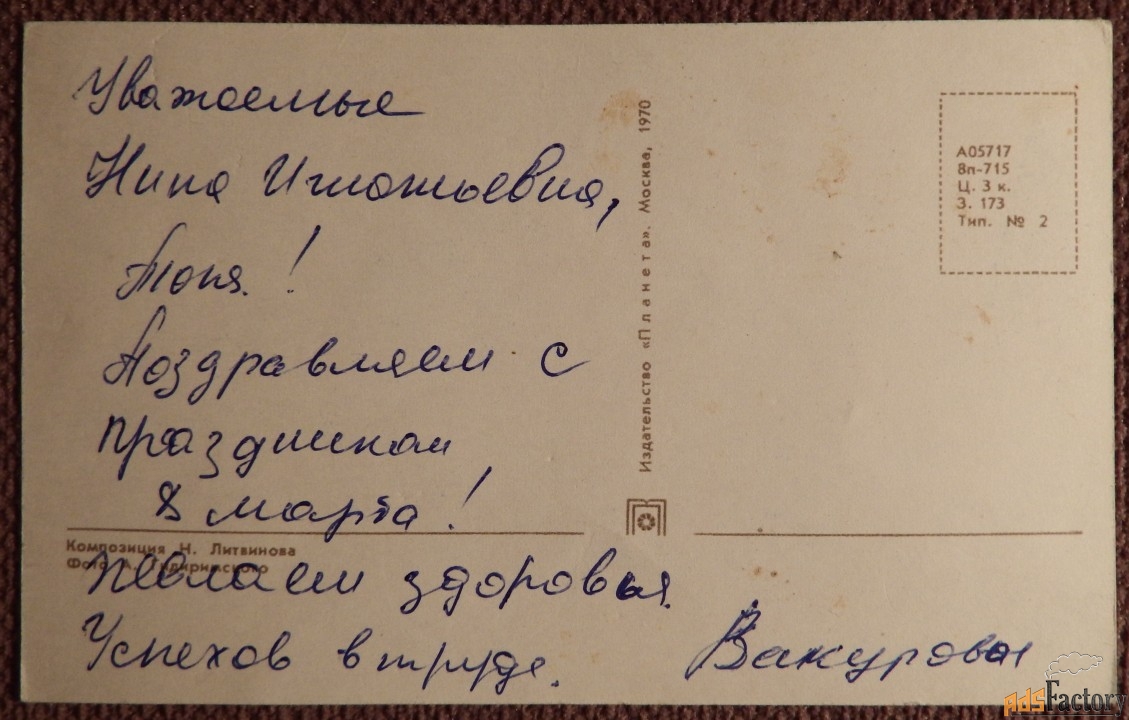 Уважаемые
Нина Игнатьевна,
Тоня!
Поздравляем с
праздником
8 марта!
Желаем здоровья.
Успехов в труде.
Вакуровы
Композиция Н. Литвинова
Фото А.
Издательство «Планета». Москва, 1970
А05717
8п-715
Ц. 3 к.
З. 173
Тип. № 2
AdsFactory